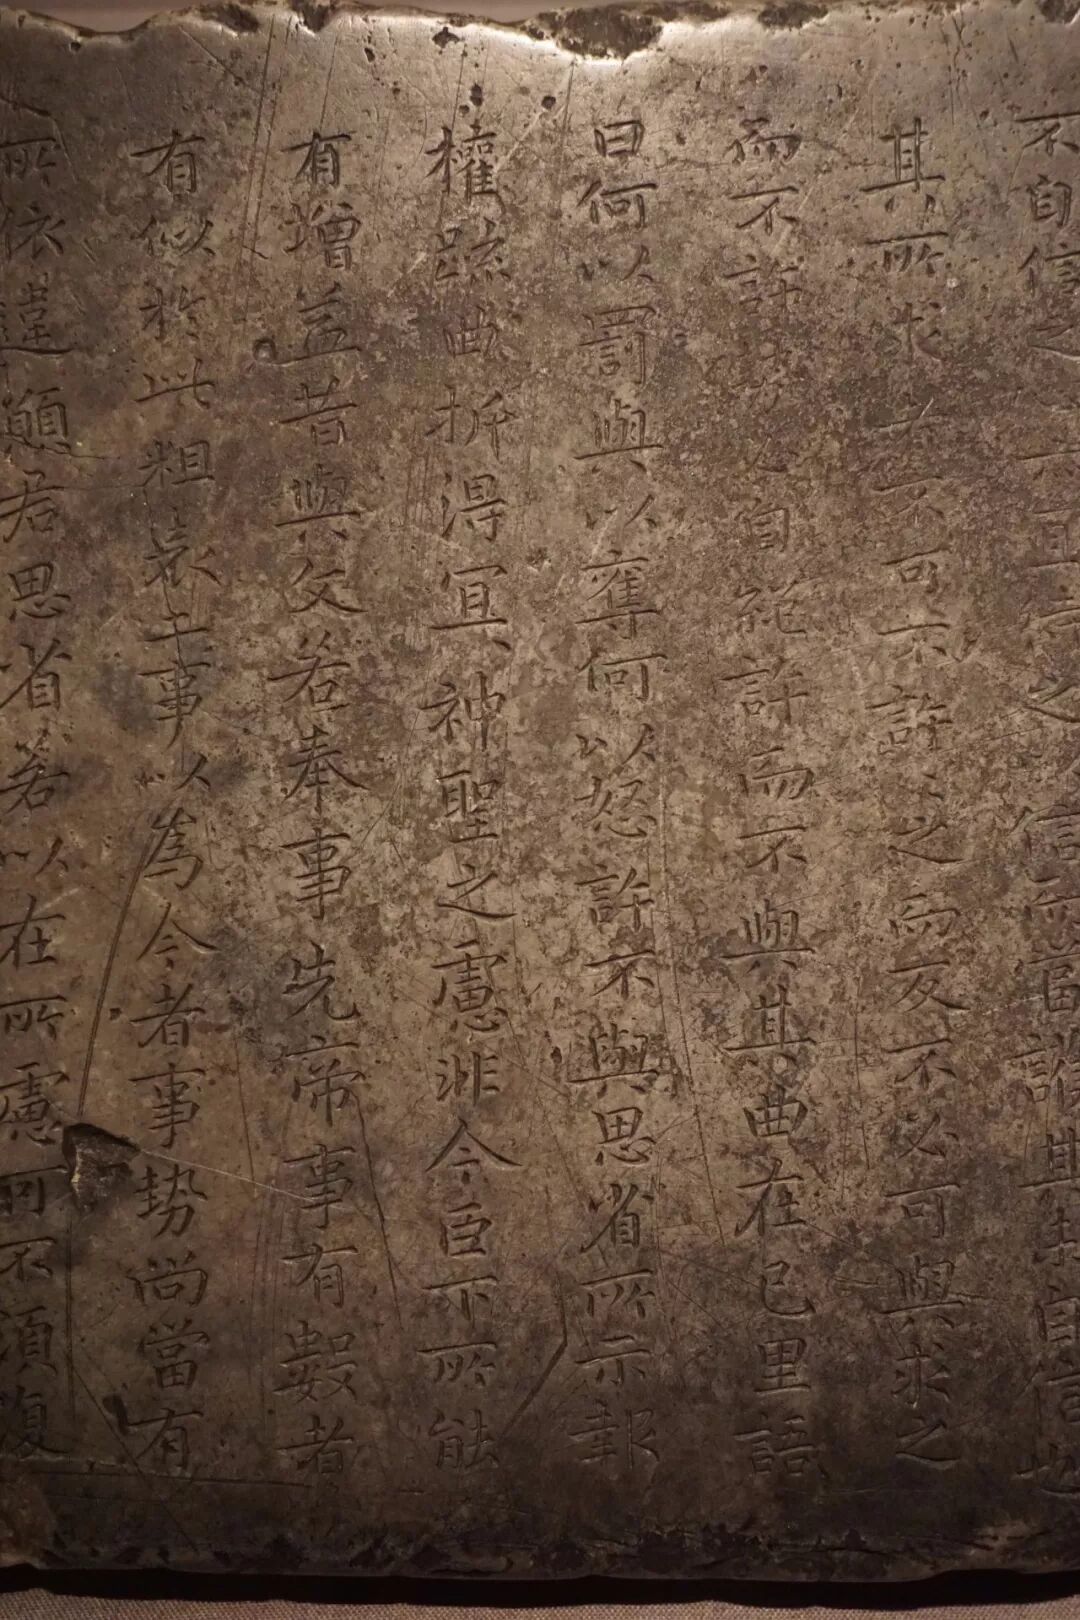 不自信之心亦宜待之以信而當護其未自信也
其所求者不可不許〻之而反不必可與求之
而不許勢必自絕許而不與其曲在己里語
曰何以罰與以奪何以怒許不與思省所示報
權疏曲折得宜〻神聖之慮非今臣下所能
有增益昔與文若奉事先帝事有數者
有似於此粗表二事以為今者事勢尚當有
所依違願君思省若以在所慮可不須復